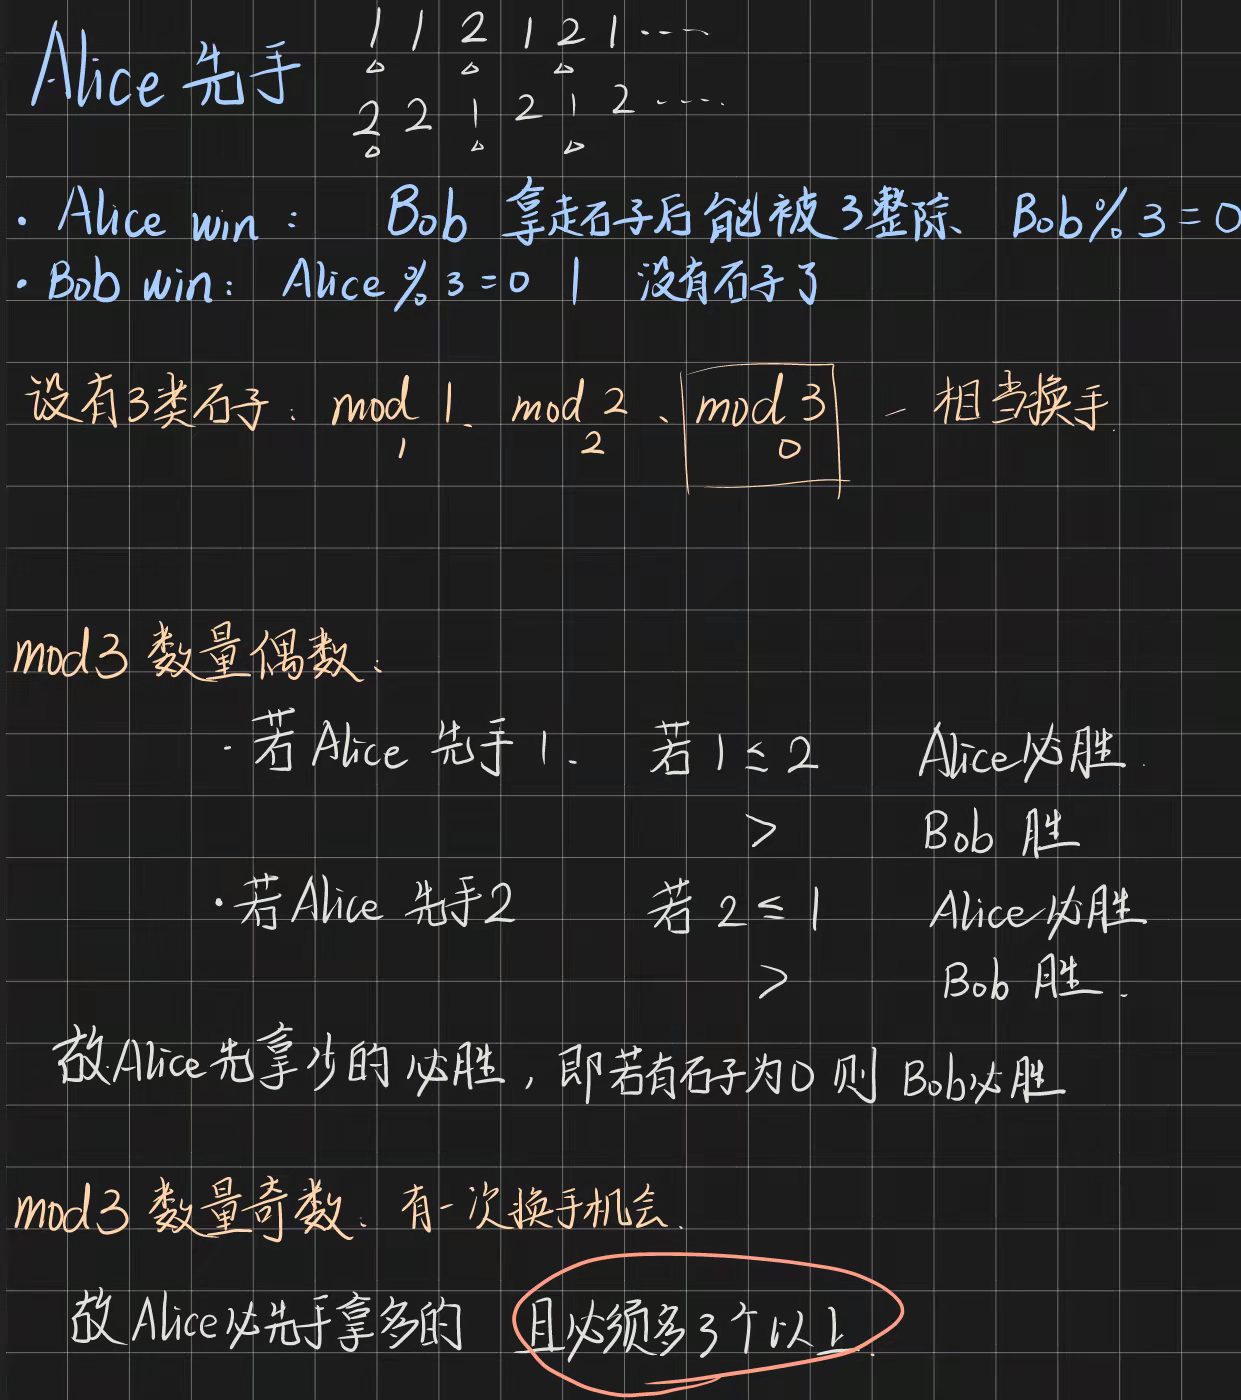 1 1 2 1 2 1 ....
Alice 先手
2 2 1 2 1 2 ....
· Alice win : Bob 拿走石子后能被3整除、Bob % 3 = 0
· Bob win : Alice % 3 = 0 | 没有石子了
设有3类石子 : mod 1、mod 2、mod 3 - 相当换手.
1 2 0
mod3 数量偶数 :
· 若 Alice 先手 1. 若 1 ≤ 2 Alice必胜.
> Bob 胜
· 若 Alice 先手2 若 2 ≤ 1 Alice必胜
> Bob 胜.
故Alice先拿少的必胜, 即若有石子为0 则 Bob必胜
mod3 数量奇数 : 有一次换手机会.
故 Alice必先手拿多的 且必须多3个以上.